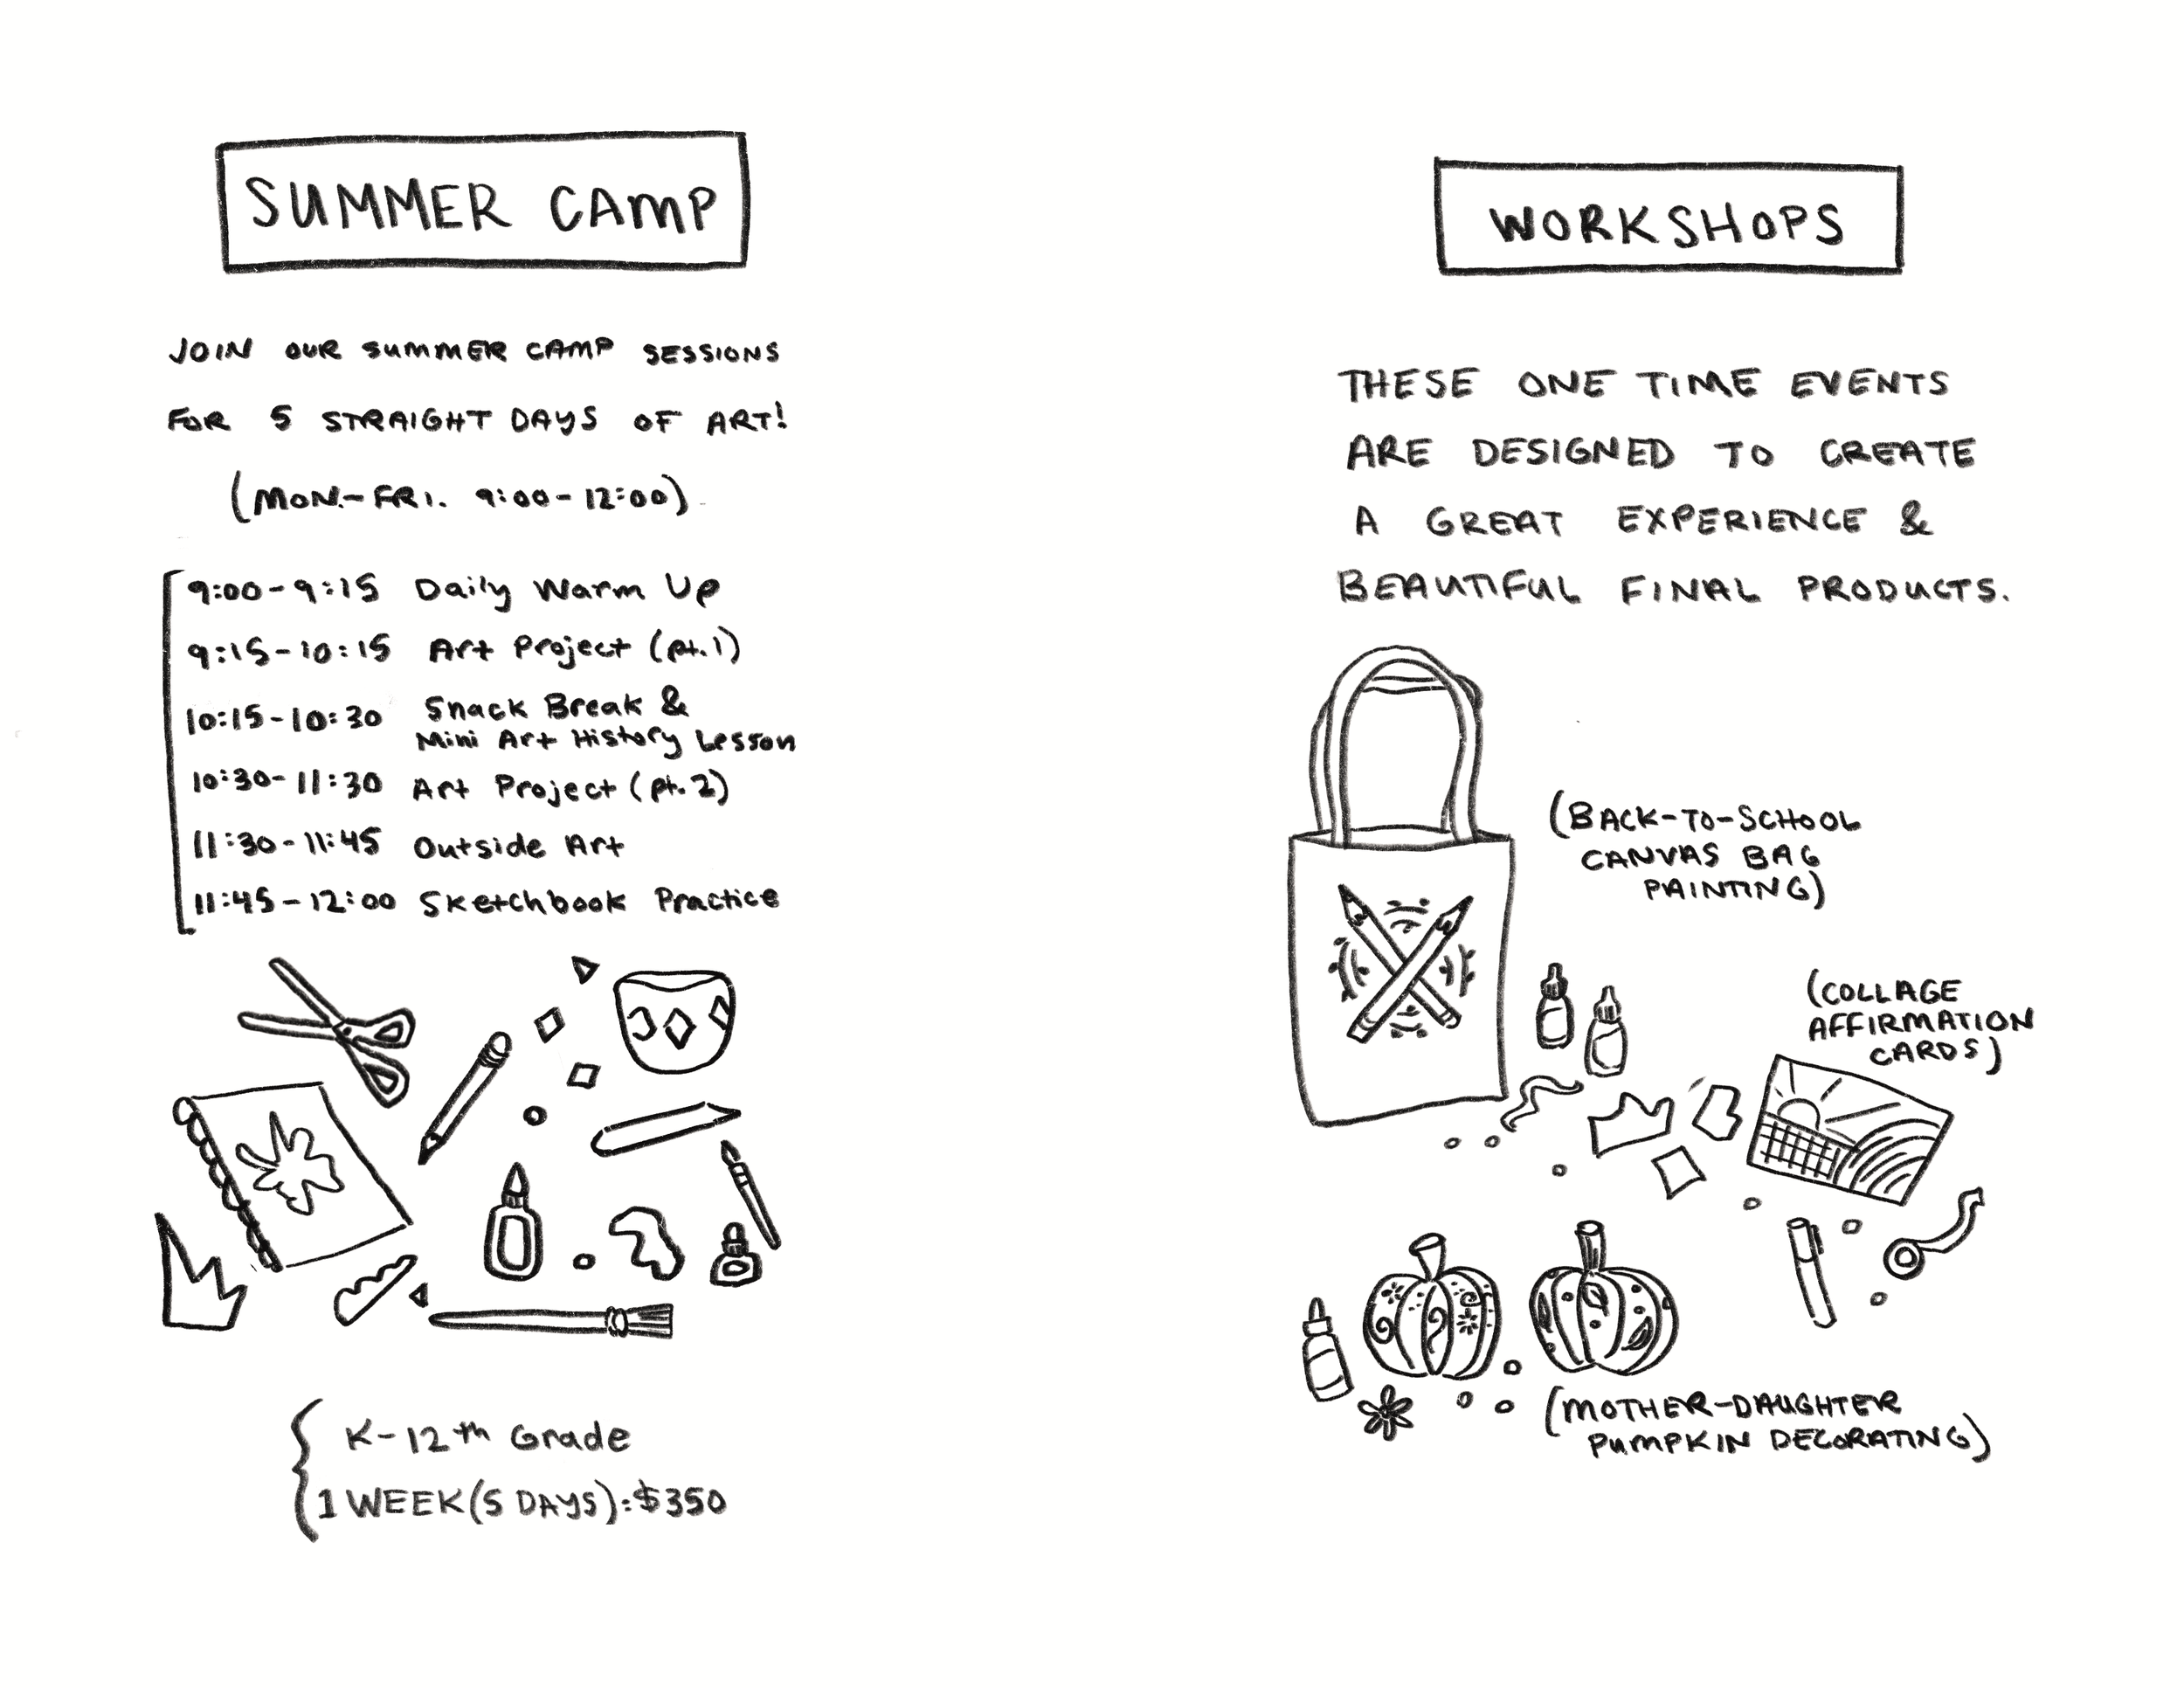 SUMMER CAMP
JOIN OUR SUMMER CAMP SESSIONS
FOR 5 STRAIGHT DAYS OF ART!
(MON.-FRI. 9:00-12:00)
9:00-9:15 Daily Warm Up
9:15-10:15 Art Project (pt.1)
10:15-10:30 Snack Break &
Mini Art History Lesson
10:30-11:30 Art Project (pt.2)
11:30-11:45 Outside Art
11:45-12:00 Sketchbook Practice
K-12th Grade
1 WEEK (5 DAYS): $350
WORKSHOPS
THESE ONE TIME EVENTS
ARE DESIGNED TO CREATE
A GREAT EXPERIENCE &
BEAUTIFUL FINAL PRODUCTS.
(BACK-TO-SCHOOL
CANVAS BAG
PAINTING)
(COLLAGE
AFFIRMATION
CARDS)
(MOTHER-DAUGHTER
PUMPKIN DECORATING)